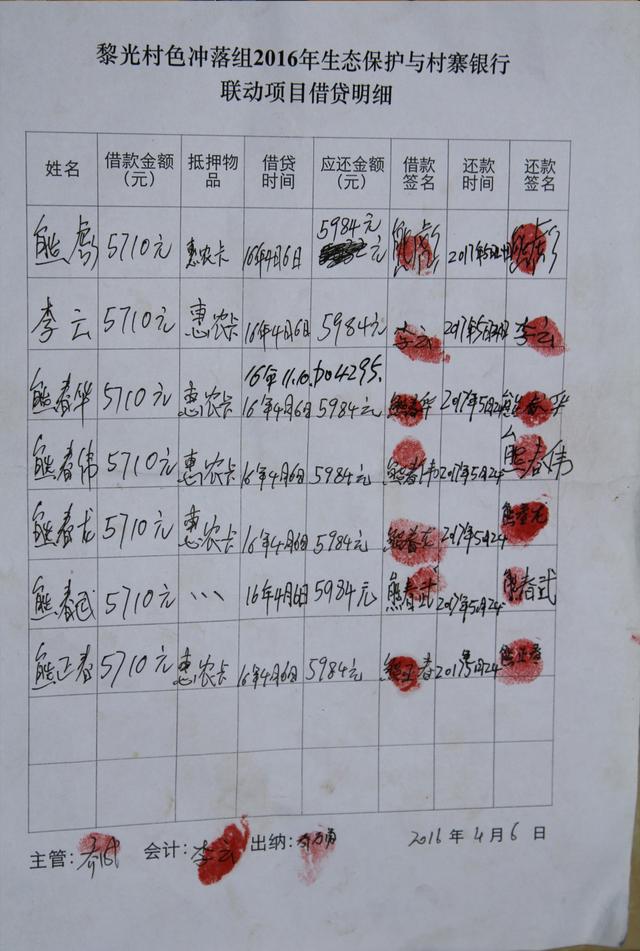 黎光村色冲落组2016年生态保护与村寨银行
联动项目借贷明细
姓名 借款金额（元） 抵押物品 借贷时间 应还金额（元） 借款签名 还款时间 还款签名
熊彪 5710元 惠农卡 16年4月6日 5984元 熊彪 2017年5月24日 熊彪
李云 5710元 惠农卡 16年4月6日 5984元 李云 2017年5月24日 李云
16年11.10.
熊春华 5710元 惠农卡 16年4月6日 5984元 熊春华 2017年5月24 熊春华
熊春伟 5710元 惠农卡 16年4月6日 5984元 熊春伟 2017年5月24 熊春伟
熊春龙 5710元 惠农卡 16年4月6日 5984元 熊春龙 2017年5月24 熊春龙
熊春武 5710元 、、、 16年4月6日 5984元 熊春武 2017年5月24 熊春武
熊正春 5710元 惠农卡 16年4月6日 5984元 熊正春 2017年5月24 熊正春
主管： 会计：李云 出纳： 2016年4月6日